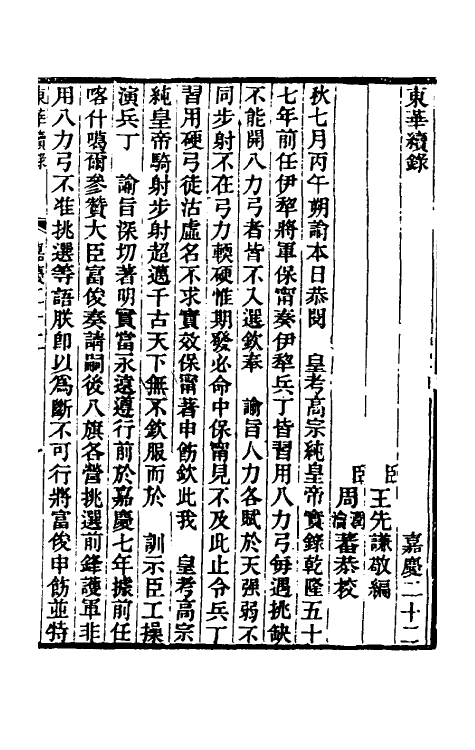 東華續錄　嘉慶二十二
臣王先謙敬編
臣周潤蕃周瀹蕃恭校
秋七月丙午朔諭本日恭閱　皇考高宗純皇帝實錄乾隆五十
七年前任伊犂將軍保甯奏伊犂兵丁皆習用八力弓每遇挑缺
不能開八力弓者皆不入選欽奉　諭旨人力各賦於天强弱不
同步射不在弓力輭硬惟期發必命中保甯見不及此止令兵丁
習用硬弓徒沽虛名不求實效保甯著申飭欽此我　皇考高宗
純皇帝騎射步射超邁千古天下無不欽服而於　訓示臣工操
演兵丁　諭旨深切著明實當永遠遵行前於嘉慶七年據前任
喀什噶爾參贊大臣富俊奏請嗣後八旗各營挑選前鋒護軍非
用八力弓不准挑選等語朕卽以爲斷不可行將富俊申飭並特
東華續錄　嘉慶二十二